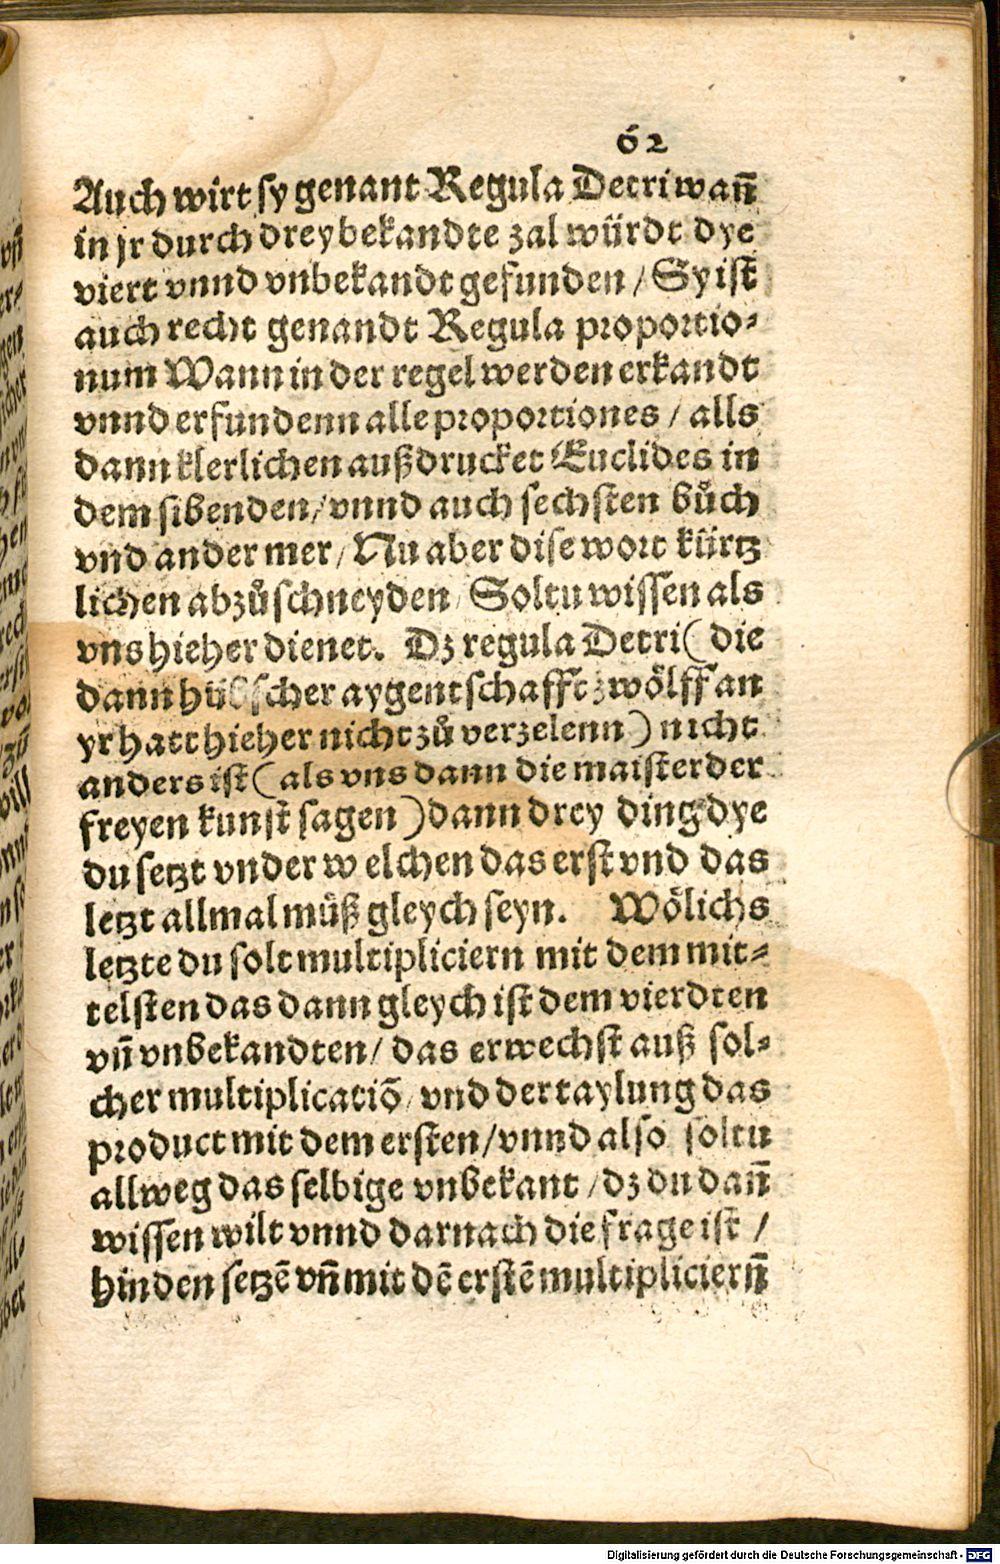 62
Auch wirt sy genant Regula Detri wañ
in jr durch drey bekandte zal würdt dye
viert vnnd vnbekandt gefunden / Sy ist
auch recht genandt Regula proportio⸗
num Wann in der regel werden erkandt
vnnd erfundenn alle proportiones / alls
dann klerlichen außdrucket Euclides in
dem sibenden / vnnd auch sechsten bůch
vnd ander mer / Nu aber dise wort kürtz
lichen abzůschneyden / Soltu wissen als
vns hieher dienet. Dz regula Detri ( die
dann hübscher aygentschafft zwölff an
yr hatt hieher nicht zů verzelenn ) nicht
anders ist ( als vns dann die maister der
freyen kunst sagen ) dann drey ding dye
du setzt vnder welchen das erst vnd das
letzt allmal můß gleych seyn. Wölichs
letzte du solt multipliciern mit dem mit⸗
telsten das dann gleych ist dem vierdten
vñ vnbekandten / das erwechst auß sol⸗
cher multiplicatiõ / vnd der taylung das
product mit dem ersten / vnnd also soltu
allweg das selbige vnbekant / dz du dañ
wissen wilt vnnd darnach die frage ist /
hinden setzē vñ mit dē erstē multipliciern̄
Digitalisierung gefördert durch die Deutsche Forschungsgemeinschaft - DFG